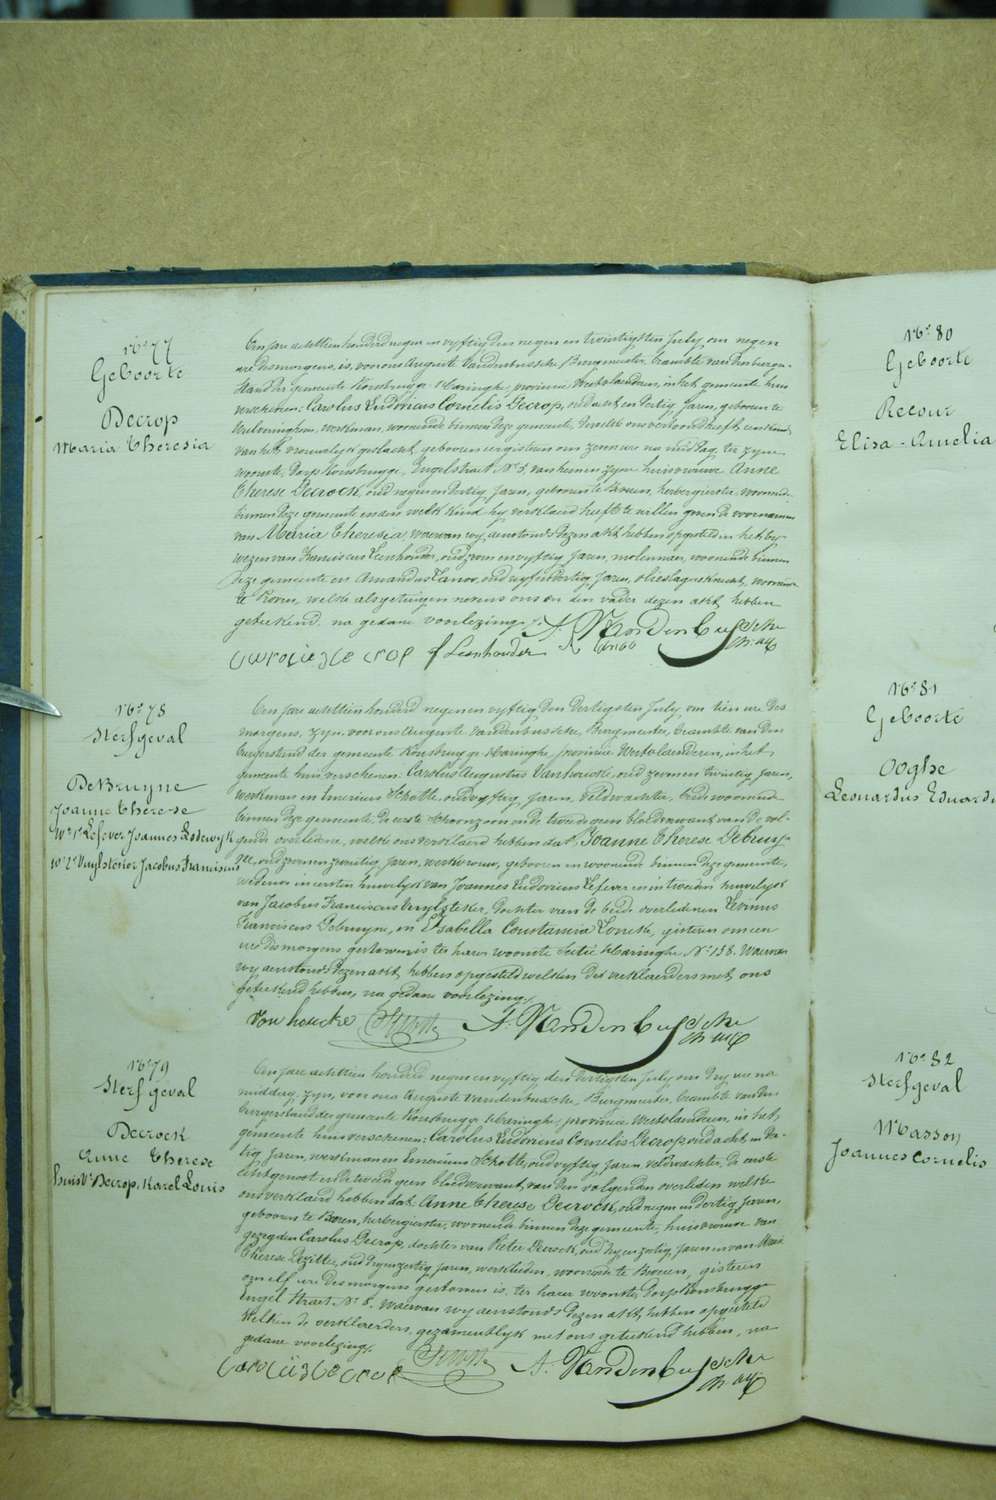 N° 77
Geboorte
Decrop
Maria Theresia
Den jare achttien honderd negen en vyftig den negen en twintigsten July, om negen
ure des morgens, is, voor ons Auguste Vandenbussche, Burgmeester, Beambte van den burger-
stand der gemeente Rousbrugge-Haringhe, provincie Westvlaanderen, in het gemeente huis
verschenen: Carolus Ludovicus Cornelis Decrop, oud acht en dertig jaren, geboren te
werkman, woonende binnen deze gemeente, dewelke ons vertoond heeft een kind
van het vrouwelyk geslacht, geboren eergisteren om zeven ure na middag, ter zyne
woonste, Dorp Rousbrugge, Engelstraet N° 8, van hem en zyne huisvrouwe Anne
Therese Decrock, oud negen en dertig jaren, geboren te herbergierster, woonende
binnen deze gemeente en aen welk kind hy verklaerd heeft te willen geven de voornamen
van Maria Theresia, waervan wy aenstonds dezen akt hebben opgesteld in het by-
wezen van Franciscus Leenhouder, oud zeven en vyftig jaren, molenaer, woonende binnen
deze gemeente en Amandus Canoo, oud vyf en dertig jaren, olieslagersknecht, woonende
te welke als getuigen nevens ons en den vader dezen akt hebben
geteekend, na gedane voorlezing.
A. Vandenbussche
Carolus De crop f Leenhouder A Canoo
N° 78
Sterfgeval
DeBruyne
Joanne Therese
We 1e Lefever Joannes Lodewyk
We 2e Vuylsteker Jacobus Franciscus
Den jare achttien honderd negen en vyftig den dertigsten July, om tien ure des
morgens, zyn, voor ons Auguste Vandenbussche, Burgmeester, Beambte van den
burgerstand der gemeente Rousbrugge-Haringhe, provincie Westvlaenderen, in het
gemeente huis verschenen: Carolus Augustus Vanhoucke, oud zeven en twintig jaren,
werkman en Emericus Schotte, oud vyftig jaren, veldwachter, beide woonende
binnen deze gemeente, de eerste schoonzoon en de tweede geen bloedverwant van de vol-
gende overledene, welke ons verklaerd hebben dat Joanne Therese Debruy-
ne, oud zeven en zestig jaren, werkvrouw, geboren en woonende binnen deze gemeente,
weduwe in eersten huwelyk van Joannes Ludovicus Lefever en in tweeden huwelyk
van Jacobus Franciscus Vuylsteker, dochter van de beide overledenen Levinus
Franciscus Debruyne, en Isabella Constantia gisteren om een
ure des morgens gestorven is ter harer woonste Sectie Haringhe N° 158. Waervan
wy aenstonds dezen akt hebben opgesteld welken de verklaerders met ons
geteekend hebben, na gedane voorlezing.
Van houcke Schotte A. Vandenbussche
N° 79
Sterfgeval
Decrock
Anne Therese
huisve Decrop, Karel Louis
Den jare achttien honderd negen en vyftig den dertigsten July om dry ure na
middag, zyn, voor ons Auguste Vandenbussche, Burgmeester, Beambte van den
burgerstand der gemeente Rousbrugge-Haringhe, provincie Westvlaenderen, in het
gemeente huis verschenen: Carolus Ludovicus Cornelis Decrop, oud acht en der-
tig jaren, werkman en Emericus Schotte, oud vyftig jaren veldwachter, de eerste
echtgenoot en de tweede geen bloedverwant van den volgenden overleden welke
ons verklaerd hebben dat Anne Therese Decrock, oud negen en dertig jaren,
geboren te herbergierster, woonende binnen deze gemeente, huisvrouw van
gezegden Carolus Decrop, dochter van Pieter Decrock, oud dry en zestig jaren en van Marie
Therese oud dry en zestig jaren, werklieden, woonende te gisteren
om elf ure des morgens gestorven is, ter harer woonste, Dorp Rousbrugge
Engel Straet N° 8. Waervan wy aenstonds dezen akt hebben opgesteld
Welken de verklaerders, gezamentlyk met ons geteekend hebben, na
gedane voorlezing.
Carolus De crop Schotte A. Vandenbussche
N° 80
Geboorte
Recour
Elisa-Amelia
N° 81
Geboorte
Ooghe
Leonardus Eduardus
N° 82
Sterfgeval
Masson
Joannes Cornelis